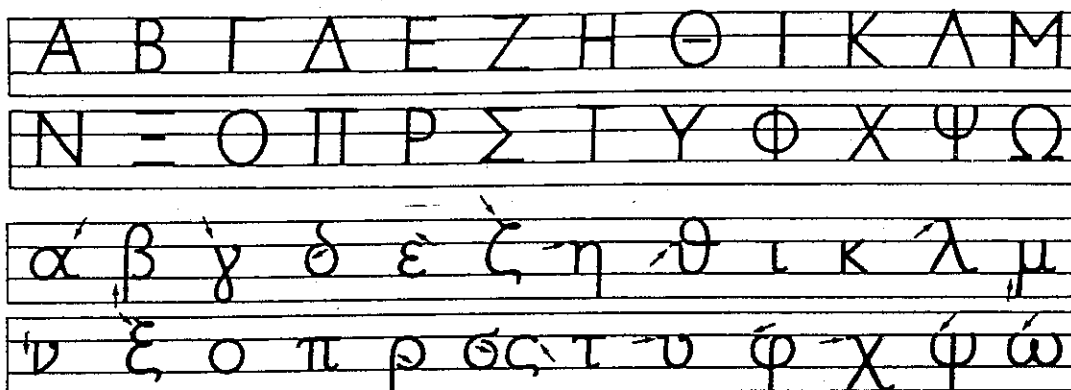 Α Β Γ Δ Ε Ζ Η Θ Ι Κ Λ Μ
Ν Ξ Ο Π Ρ Σ Τ Υ Φ Χ Ψ Ω
α β γ δ ε ζ η θ ι κ λ μ
ν ξ ο π ρ σ ς τ υ φ χ ψ ω